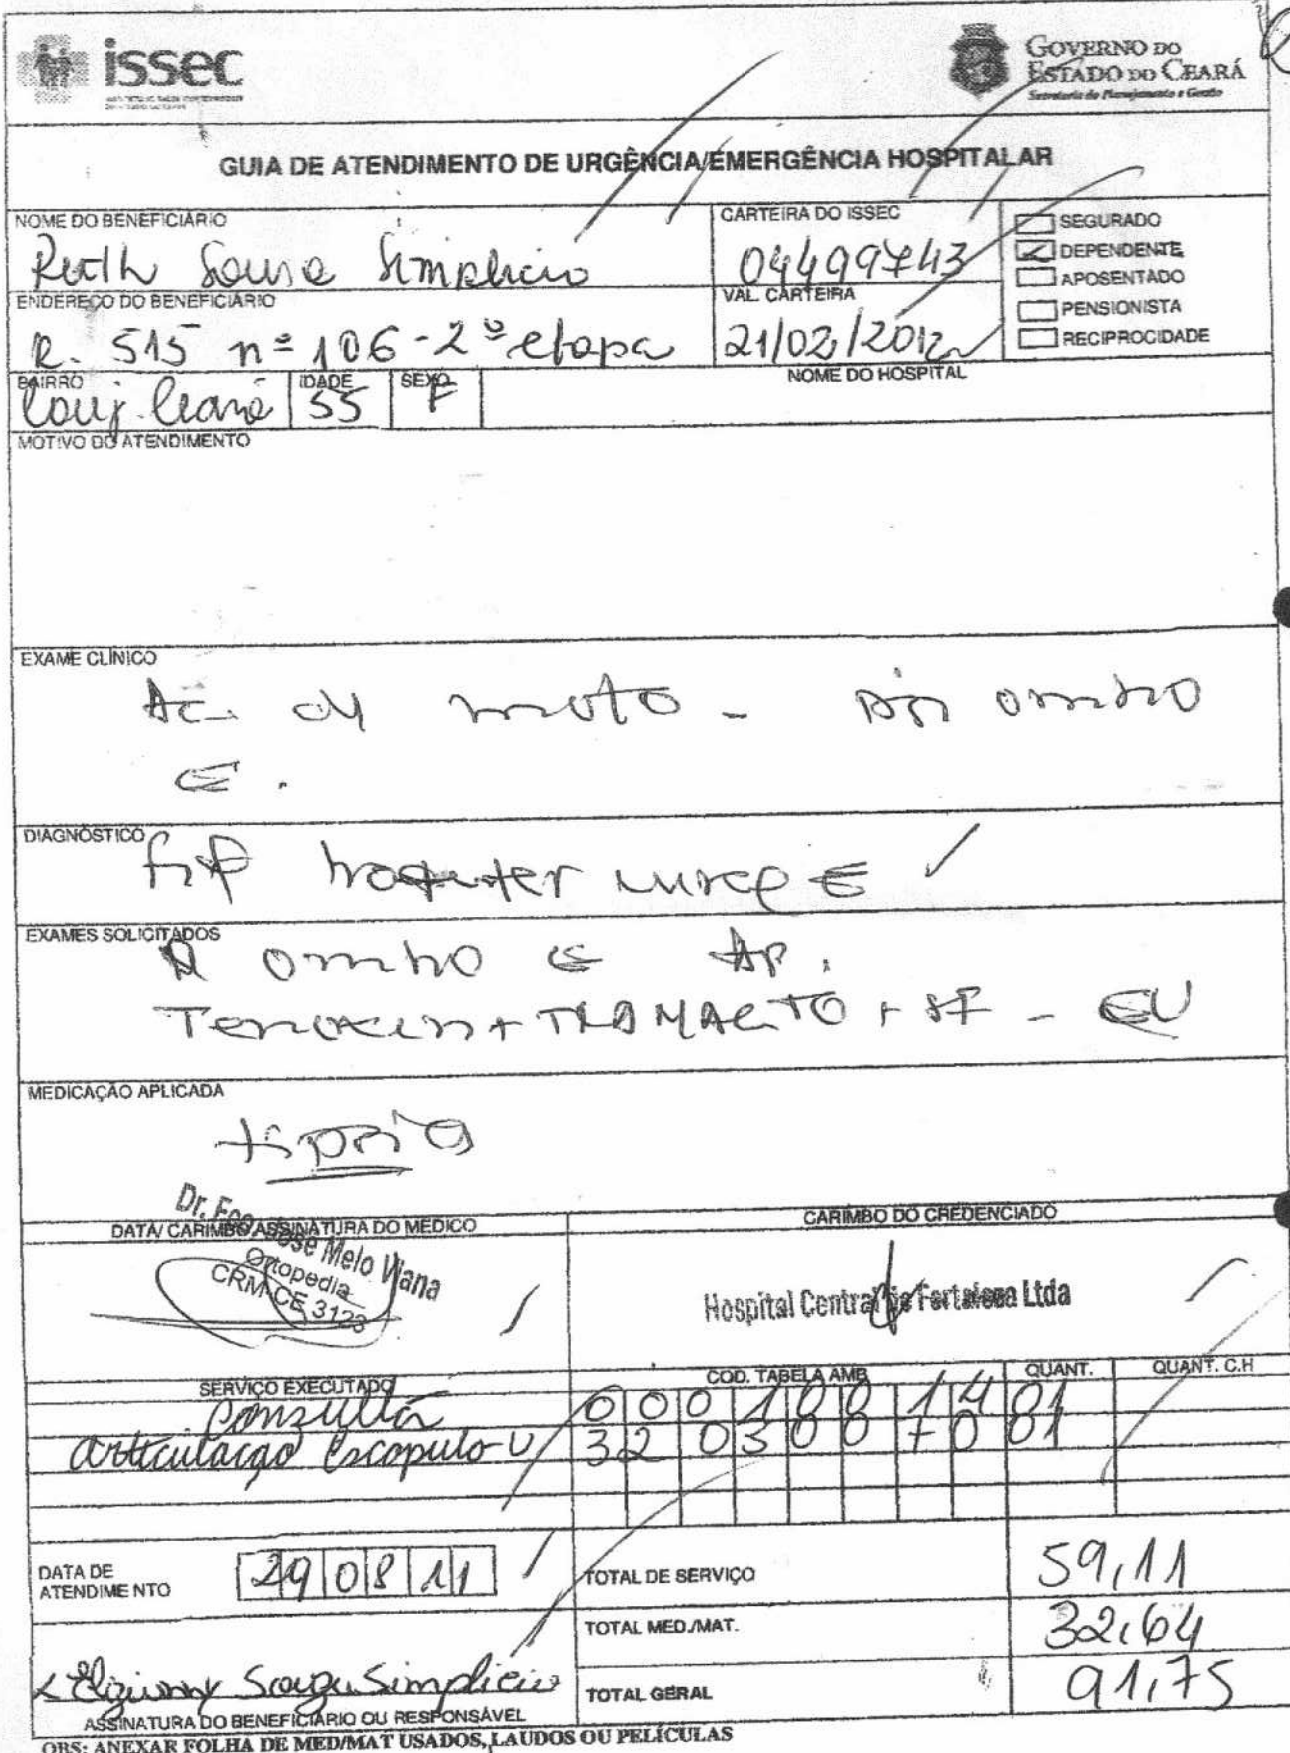 issec
GOVERNO DO
ESTADO DO CEARÁ
Secretaria do Planejamento e Gestão
GUIA DE ATENDIMENTO DE URGÊNCIA/EMERGÊNCIA HOSPITALAR
NOME DO BENEFICIÁRIO
Ruth Sousa Simplicio
CARTEIRA DO ISSEC
04499743
SEGURADO
DEPENDENTE
APOSENTADO
PENSIONISTA
RECIPROCIDADE
ENDEREÇO DO BENEFICIÁRIO
R. 515 nº 106 - 2ª etapa
VAL. CARTEIRA
21/02/2012
BAIRRO
Conj. Ceará
IDADE
55
SEXO
F
NOME DO HOSPITAL
MOTIVO DO ATENDIMENTO
EXAME CLÍNICO
Ac. de moto - Dor ombro
E.
DIAGNÓSTICO
E
EXAMES SOLICITADOS
ombro E AP.
+ SF - EV
MEDICAÇÃO APLICADA
tipoia
DATA/ CARIMBO ASSINATURA DO MÉDICO
Dr. José Melo Viana
Ortopedia
CRM-CE 3123
CARIMBO DO CREDENCIADO
Hospital Central de Fortaleza Ltda
SERVIÇO EXECUTADO
COD. TABELA AMB
QUANT.
QUANT. C.H
Consulta 0 0 0 1 0 0 1 4 01
articulação escapulo-U 3 2 0 3 0 0 7 0 01
DATA DE
ATENDIMENTO
29 08 11
TOTAL DE SERVIÇO
59,11
TOTAL MED./MAT.
32,64
TOTAL GERAL
91,75
Souza Simplicio
ASSINATURA DO BENEFICIÁRIO OU RESPONSÁVEL
OBS: ANEXAR FOLHA DE MED/MAT USADOS, LAUDOS OU PELÍCULAS